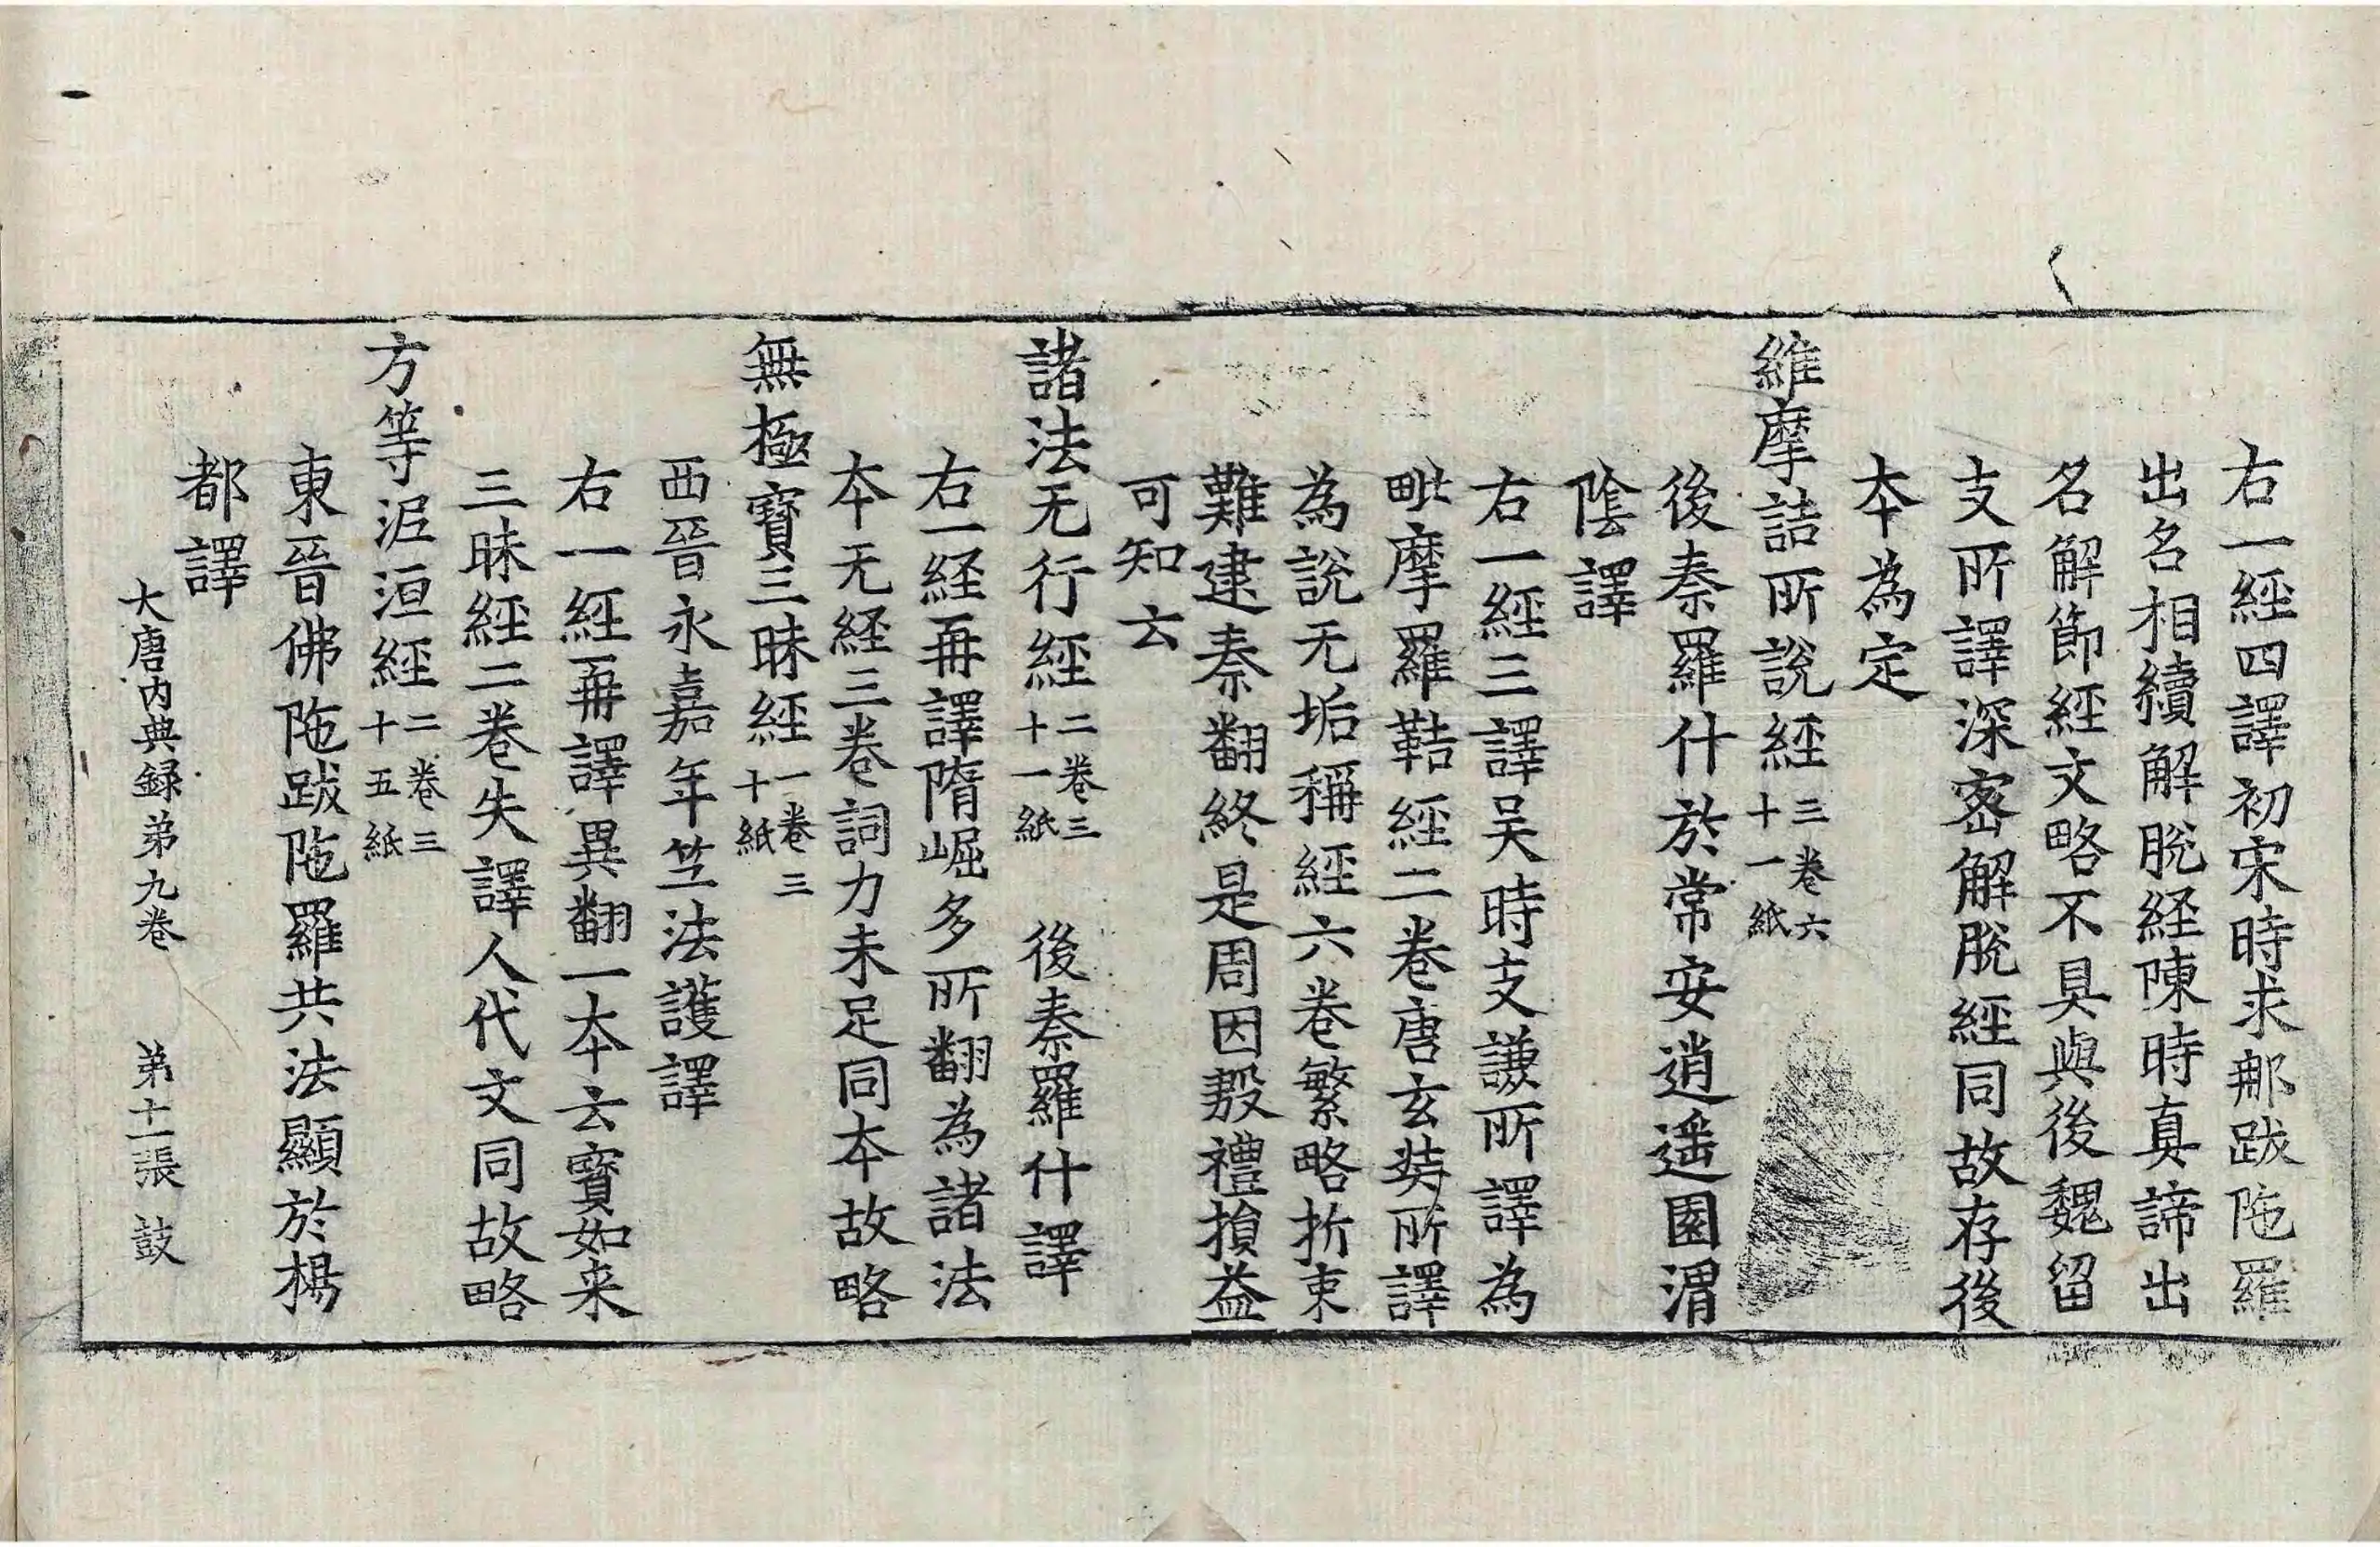 右一經四譯初宋時求那跋陁羅
出名相續解脫経陳時真諦出
名解節經文略不具與後魏留
支所譯深宻解脫經同故存後
夲為定
維摩詰所說經三卷六十一紙
後秦羅什於常安逍遥園渭
陰譯
右一經三譯吴時支謙所譯為
毗摩羅鞊經二卷唐玄奘所譯
為說无垢稱經六卷繁略折衷
難建秦翻終是周因殷禮損益
可知云
諸法无行經二卷三十一紙 後秦羅什譯
右一経再譯隋崛多所翻為諸法
夲无経三卷詞力未足同夲故略
無極寶三昧經一卷三十紙
西晉永嘉年竺法護譯
右一經再譯異翻一夲云寳如来
三昧經二卷失譯人代文同故略
方等泥洹經二卷三十五紙
東晉佛陁跋陁羅共法顯於楊
都譯
大唐内典録弟九卷 弟十一張 鼓